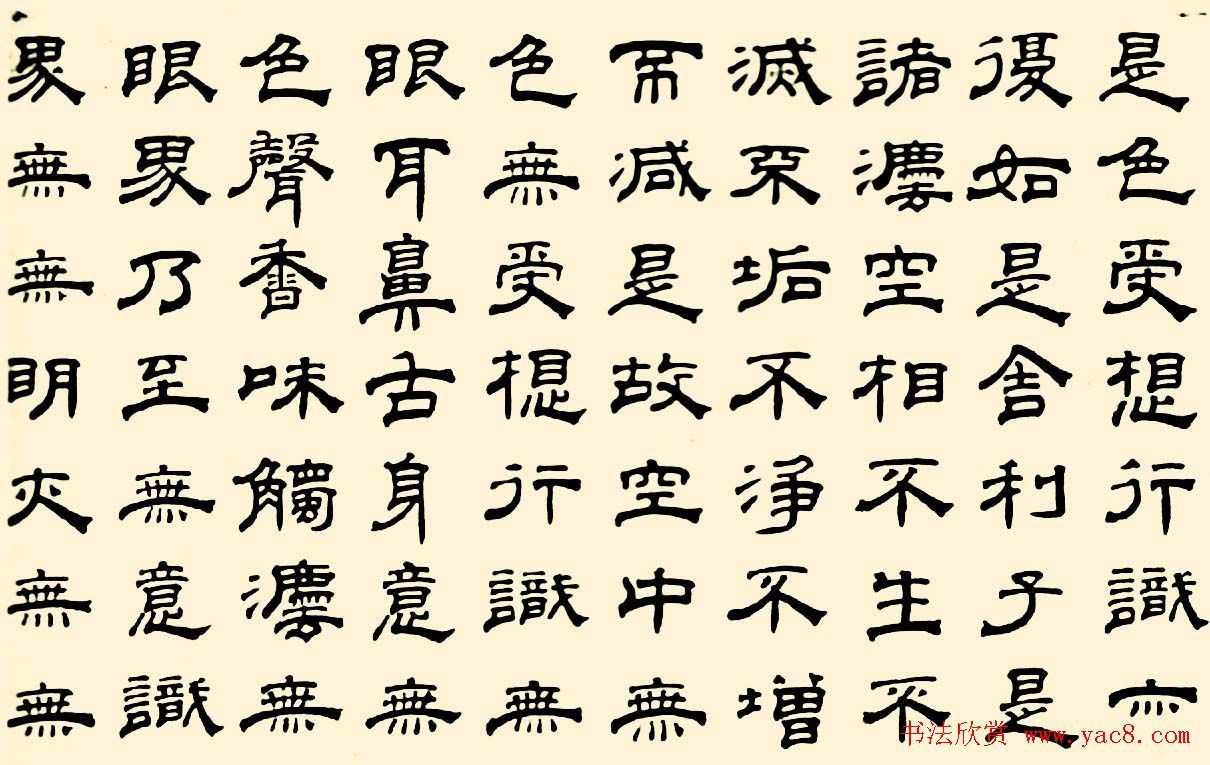 是色受想行識亦
復如是舍利子是
諸灋空相不生不
滅不垢不淨不增
不減是故空中無
色無受想行識無
眼耳鼻舌身意無
色聲香味觸灋無
眼界乃至無意識
界無無明亦無無
书法欣赏 www.yac8.com